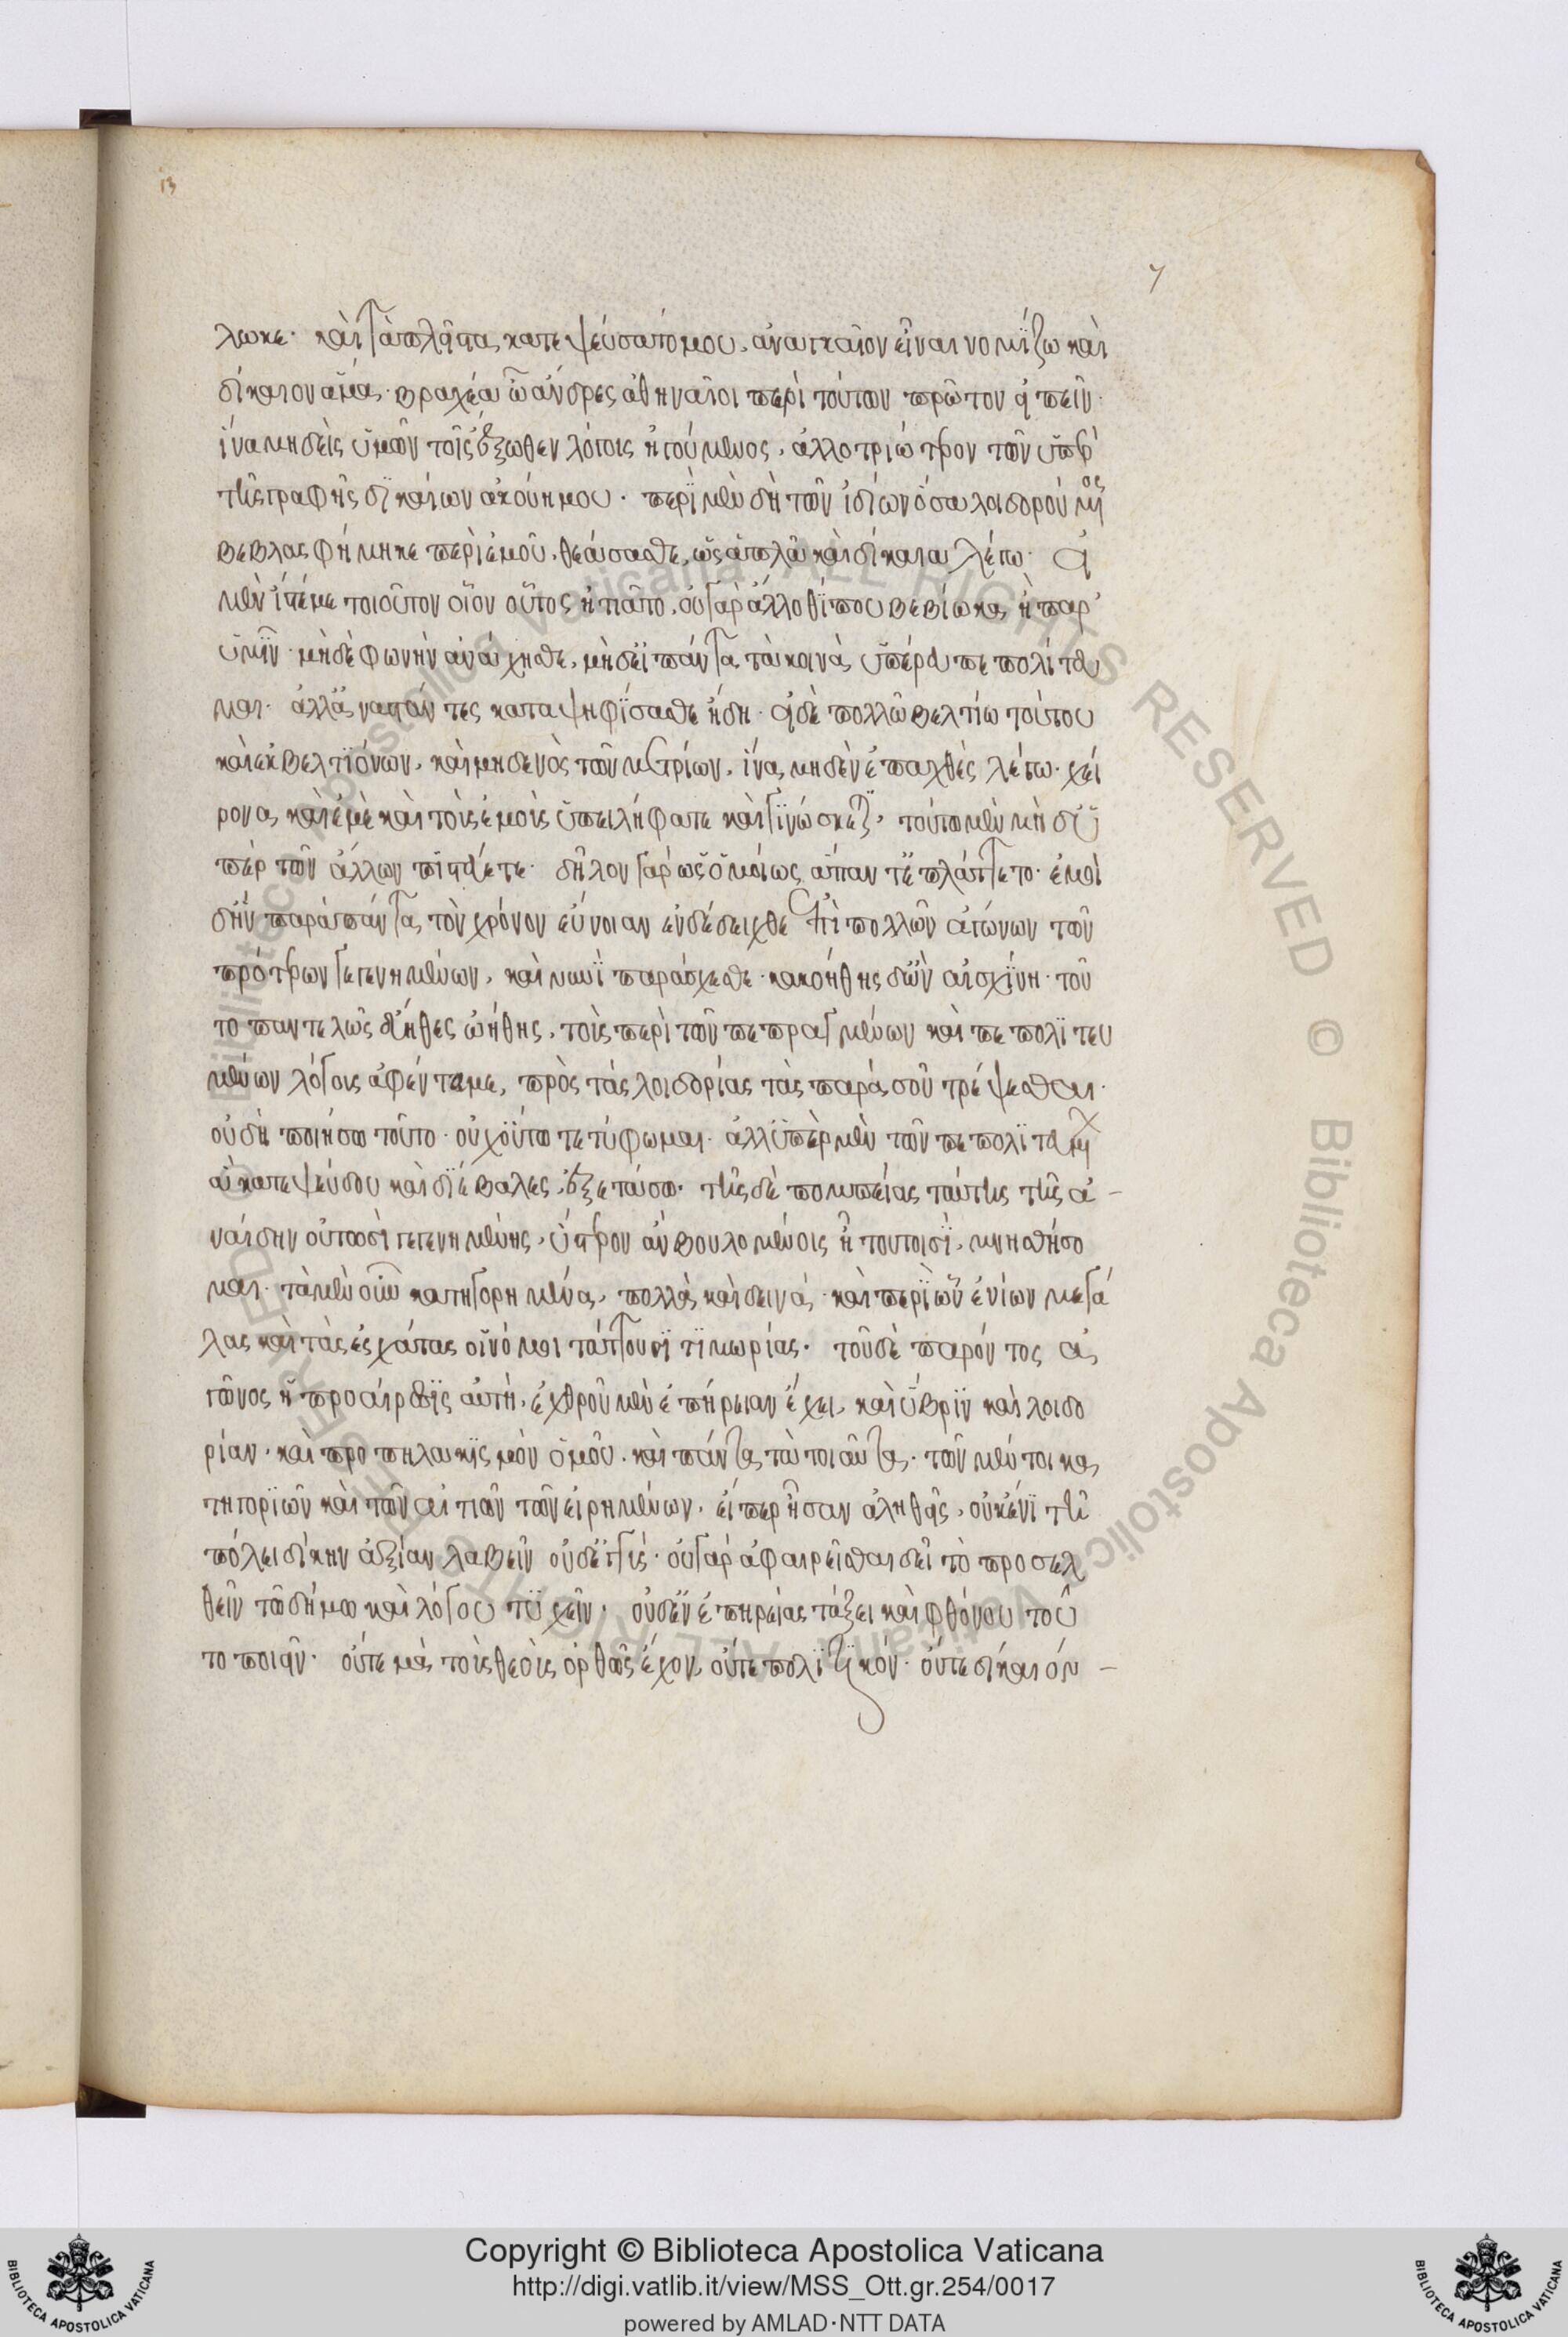 13
7
λωκε· καὶ τὰ πλεῖστα κατεψεύσατό μου, ἀναγκαῖον εἶναι νομίζω καὶ
δίκαιον ἅμα, βραχέα ὦ ἄνδρες ἀθηναῖοι περὶ τούτων πρῶτον εἰπεῖν·
ἵνα μηδεὶς ὑμῶν τοῖς ἔξωθεν λόγοις ἠγούμενος, ἀλλοτριώτερον τῶν ὑπὲρ
τῆς γραφῆς δικαίων ἀκούη μου· περὶ μὲν δὴ τῶν ἰδίων ὅσα λοιδορούμενος
βεβλασφήμηκε περὶ ἐμοῦ, θεάσασθε, ὡς ἁπλᾶ καὶ δίκαια λέγω· εἰ
μὲν ἴστέ με τοιοῦτον οἷον οὗτος ἠτιᾶτο, οὐ γὰρ ἄλλοθί που βεβίωκα, ἢ παρ'
ὑμῖν· μὴ δὲ φωνὴν ἀνάσχησθε, μὴ δ' εἰ πάντα τὰ κοινὰ ὑπέρευ πεπολίτευ
μαι· ἀλλ' ἀναστάντες καταψηφίσασθε ἤδη· εἰ δὲ πολλῶ βελτίω τούτου
καὶ ἐκ βελτιόνων, καὶ μηδενὸς τῶν μετρίων, ἵνα μηδὲν ἐπαχθὲς λέγω· χεί
ρονα καὶ ἐμὲ καὶ τοὺς ἐμοὺς ὑπειλήφατε καὶ γινώσκετε, τούτω μὲν μὴ δ' ὑ
πὲρ τῶν ἄλλων πιστεύετε· δῆλον γὰρ ὡς ὁμοίως ἅπαντ' ἐπλάττετο· ἐμοὶ
δ' ἣν παρὰ πάντα τὸν χρόνον εὔνοιαν ἐνδέδειχθε ἐπὶ πολλῶν ἀγώνων τῶν
πρότερον γεγενημένων, καὶ νυνὶ παράσχεσθε· κακοήθης δ' ὢν αἰσχίνη· τοῦ
το παντελῶς εὔηθες ὠήθης, τοὺς περὶ τῶν πεπραγμένων καὶ πεπολιτευ
μένων λόγους ἀφέντα με, πρὸς τὰς λοιδορίας τὰς παρὰ σοῦ τρέψεσθαι·
οὐ δὴ ποιήσω τοῦτο· οὐχ οὕτω τετύφωμαι· ἀλλ' ὑπὲρ μὲν τῶν πεπολιτευμένων
ἃ κατεψεύδου καὶ διέβαλες, ἐξετάσω· τῆς δὲ πομπείας ταύτης τῆς ἀ–
ναίδην οὑτωσὶ γεγενημένης, ὕστερον ἂν βουλομένοις ἦ τουτοισὶ, μνησθήσο
μαι· τὰ μὲν οὖν κατηγορημένα, πολλὰ καὶ δεινά· καὶ περὶ ὧν ἐνίων μεγά
λας καὶ τὰς ἐσχάτας οἱ νόμοι τάττουσι τιμωρίας· τοῦ δὲ παρόντος ἀ
γῶνος ἡ προαίρεσις αὐτὴ, ἐχθροῦ μὲν ἐπήρειαν ἔχει, καὶ ὕβριν καὶ λοιδο
ρίαν· καὶ προπηλακισμὸν ὁμοῦ· καὶ πάντα τὰ τοιαῦτα· τῶν μέντοι κα
τηγοριῶν καὶ τῶν αἰτιῶν τῶν εἰρημένων, εἴπερ ἦσαν ἀληθεῖς, οὐκ ἔνι τῆ
πόλει δίκην ἀξίαν λαβεῖν οὐδ' ἐγγύς· οὐ γὰρ ἀφαιρεῖσθαι δεῖ τὸ προσελ
θεῖν τῶ δήμω καὶ λόγου τυχεῖν· οὐδ' ἐν ἐπηρείας τάξει καὶ φθόνου τοῦ
το ποιεῖν· οὔτε μὰ τοὺς θεοὺς ὀρθῶς ἔχον, οὔτε πολιτικόν· οὔτε δίκαιόν –
Copyright © Biblioteca Apostolica Vaticana
http://digi.vatlib.it/view/MSS_Ott.gr.254/0017
powered by AMLAD·NTT DATA